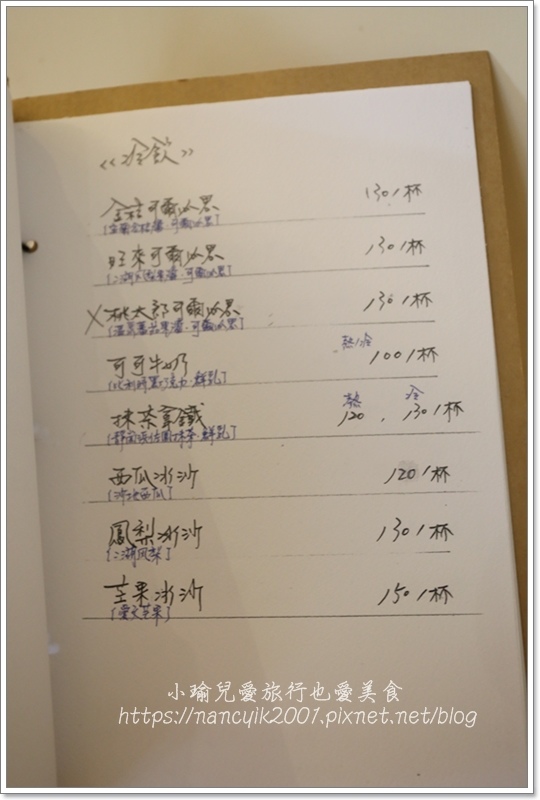 <<冷飲>>
金桔可爾必思 130/杯
旺來可爾必思 130/杯
X桃太郎可爾必思 130/杯
熱/冷
可可牛奶 100/杯
熱 冷
抹茶拿鐵 120 . 130/杯
西瓜冰沙 120/杯
[沙地西瓜]
鳳梨冰沙 130/杯
[二湖鳳梨]
芒果冰沙 150/杯
[愛文芒果]
小瑜兒愛旅行也愛美食
https://nancyik2001.pixnet.net/blog